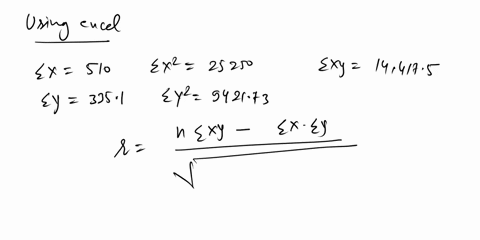 Using excel
Σx = 510 Σx² = 25250 Σxy = 14,417.5
Σy = 335.1 Σy² = 9421.73
r = n Σxy - Σx·Σy / √